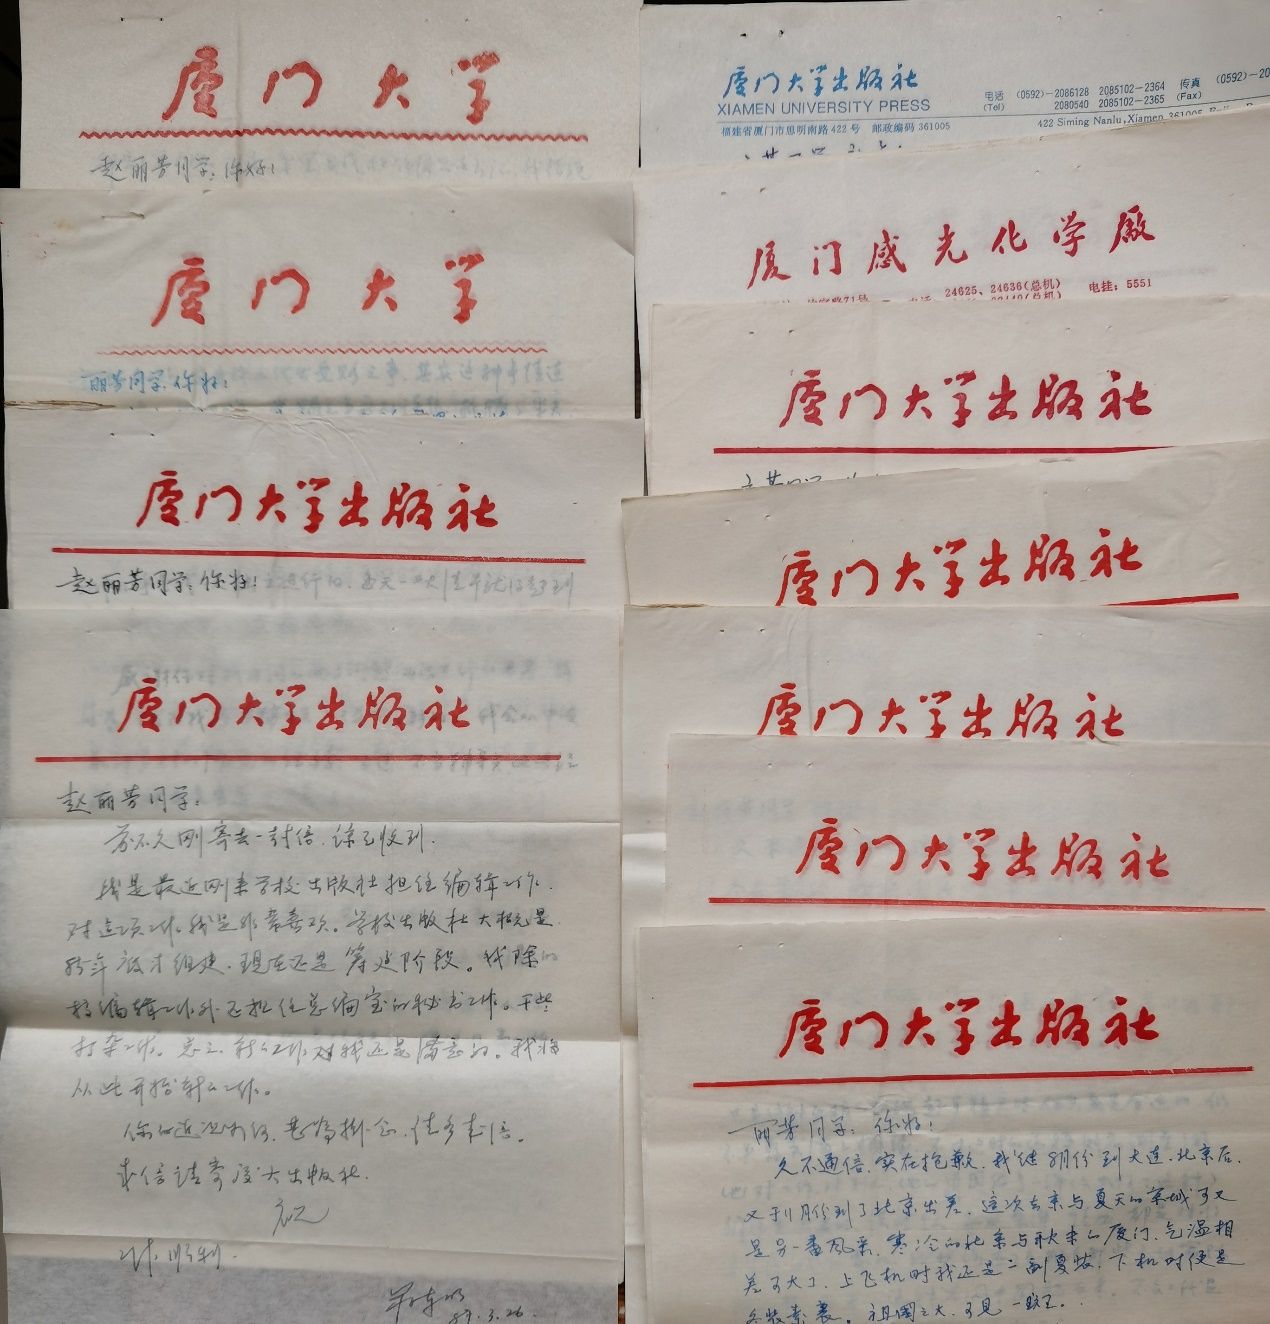 厦门大学
赵丽芳同学：你好！
厦门大学
丽芳同学：你好！
厦门大学出版社
赵丽芳同学：你好！
厦门大学出版社
赵丽芳同学：
前不久刚寄去一封信，谅已收到。
我是最近刚来学校出版社担任编辑工作。
对这项工作我是非常喜欢。学校出版社大概是
今年底才组建，现在还是筹建阶段。我除
编辑工作外还担任总编室的秘书工作。干些
打杂工作。总之，新的工作对我还是满意的。我将
从此开始新的工作。
你的近况如何，甚为挂念，请多来信。
来信请寄厦大出版社。
祝
工作顺利。
87.3.26.
厦门大学出版社
XIAMEN UNIVERSITY PRESS
电话 (0592)-2086128 2085102-2364 传真 (0592)-20
(Tel) 2080540 2085102-2365 (Fax)
福建省厦门市思明南路422号 邮政编码361005
422 Siming Nanlu, Xiamen 361005
厦门感光化学厰
24625、24636(总机) 电挂：5551
厦门大学出版社
厦门大学出版社
厦门大学出版社
厦门大学出版社
厦门大学出版社
丽芳同学：你好！
久不通信，实在抱歉，我继8月份到大连、北京后，
又于11月份到了北京出差，这次去京与夏天的京城可又
是另一番风采，寒冷的北京与秋末的厦门，气温相
差可大了，上飞机时我还是一副夏装，下机时便是
冬装素裹。祖国之大，可见一斑。